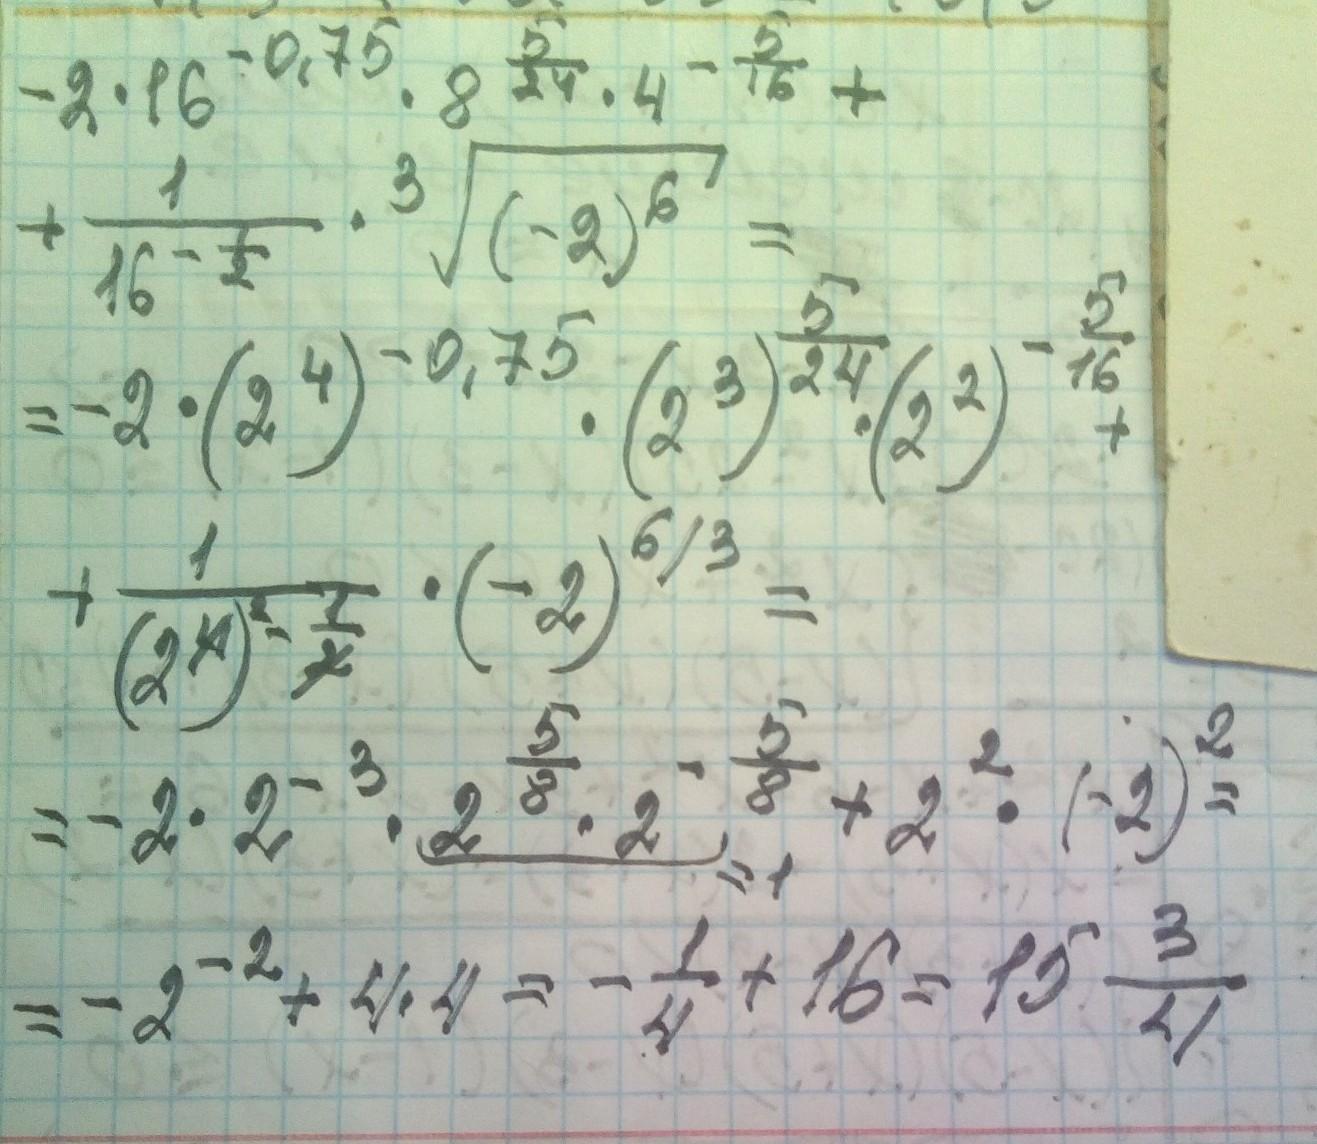 -2·16^{-0,75}·8^{\frac{5}{24}}·4^{-\frac{5}{16}}+
+\frac{1}{16^{-\frac{1}{2}}}·\sqrt[3]{(-2)^6}=
=-2·(2^4)^{-0,75}·(2^3)^{\frac{5}{24}}·(2^2)^{-\frac{5}{16}}+
+\frac{1}{(2^4)^{-\frac{1}{2}}}·(-2)^{6/3}=
=-2·2^{-3}·2^{\frac{5}{8}}·2^{-\frac{5}{8}}+2^2·(-2)^2=
=1
=-2^{-2}+4·4=-\frac{1}{4}+16=15\frac{3}{4}